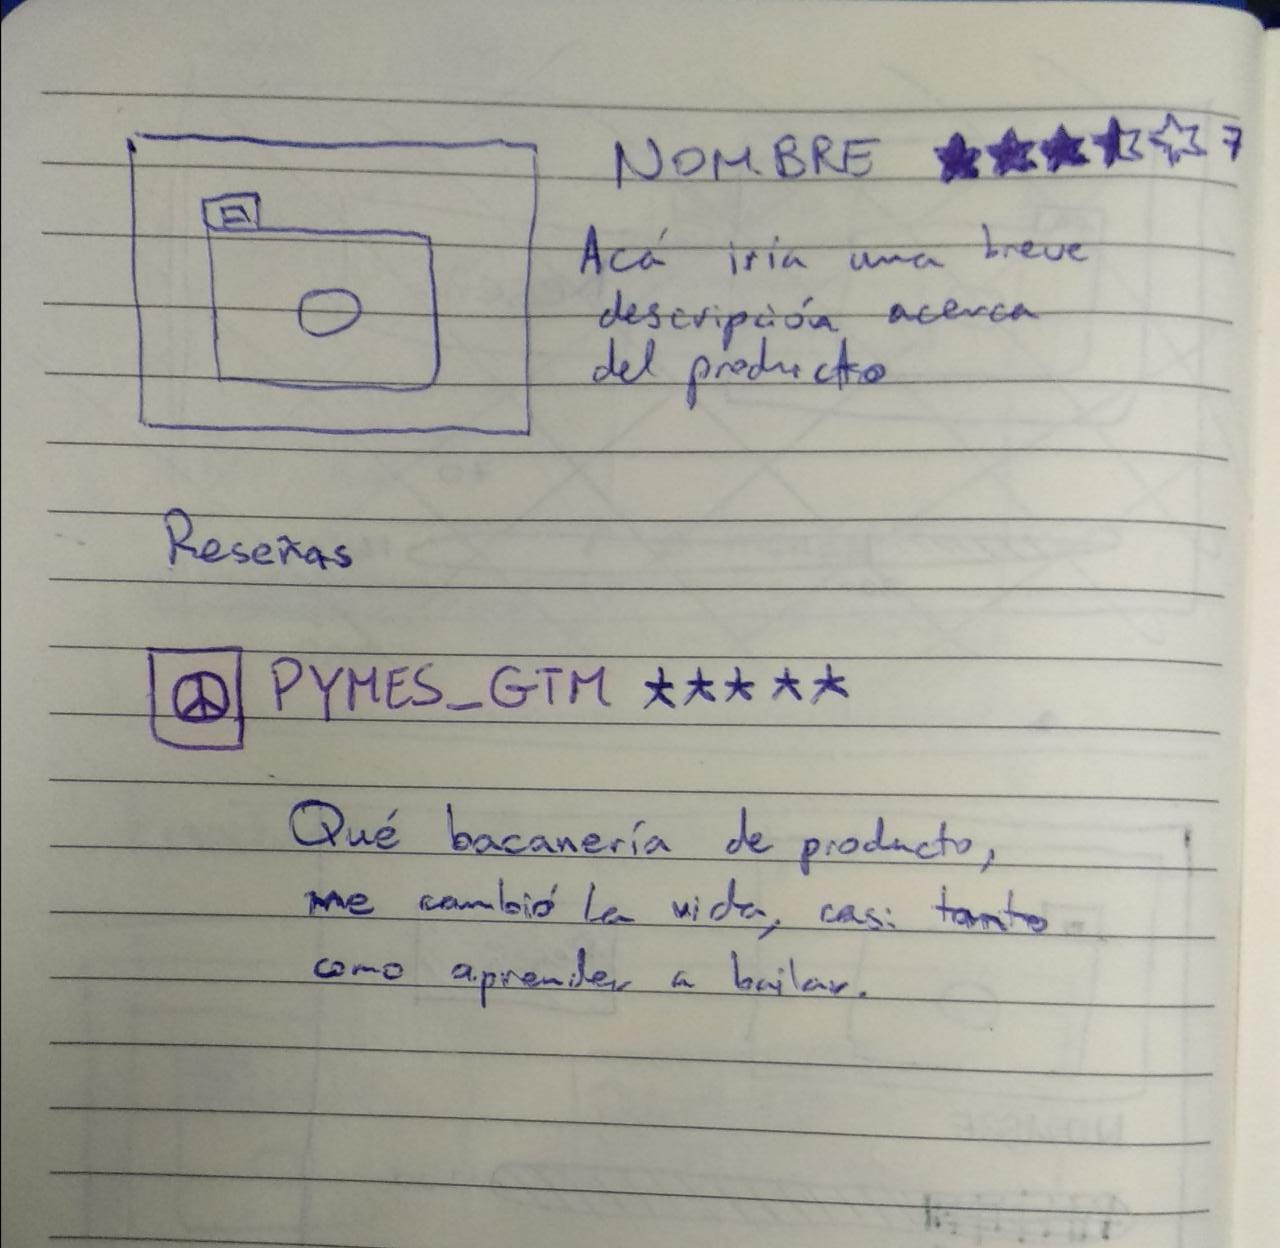 NOMBRE ★★★⯪☆ 7
Acá iría una breve
descripción acerca
del producto
Reseñas
PYMES_GTM ★★★★★
Qué bacanería de producto,
me cambió la vida, casi tanto
como aprender a bailar.